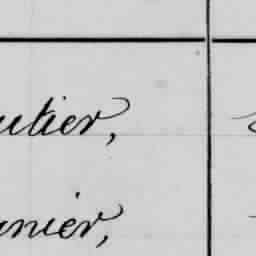 utier,
nier,